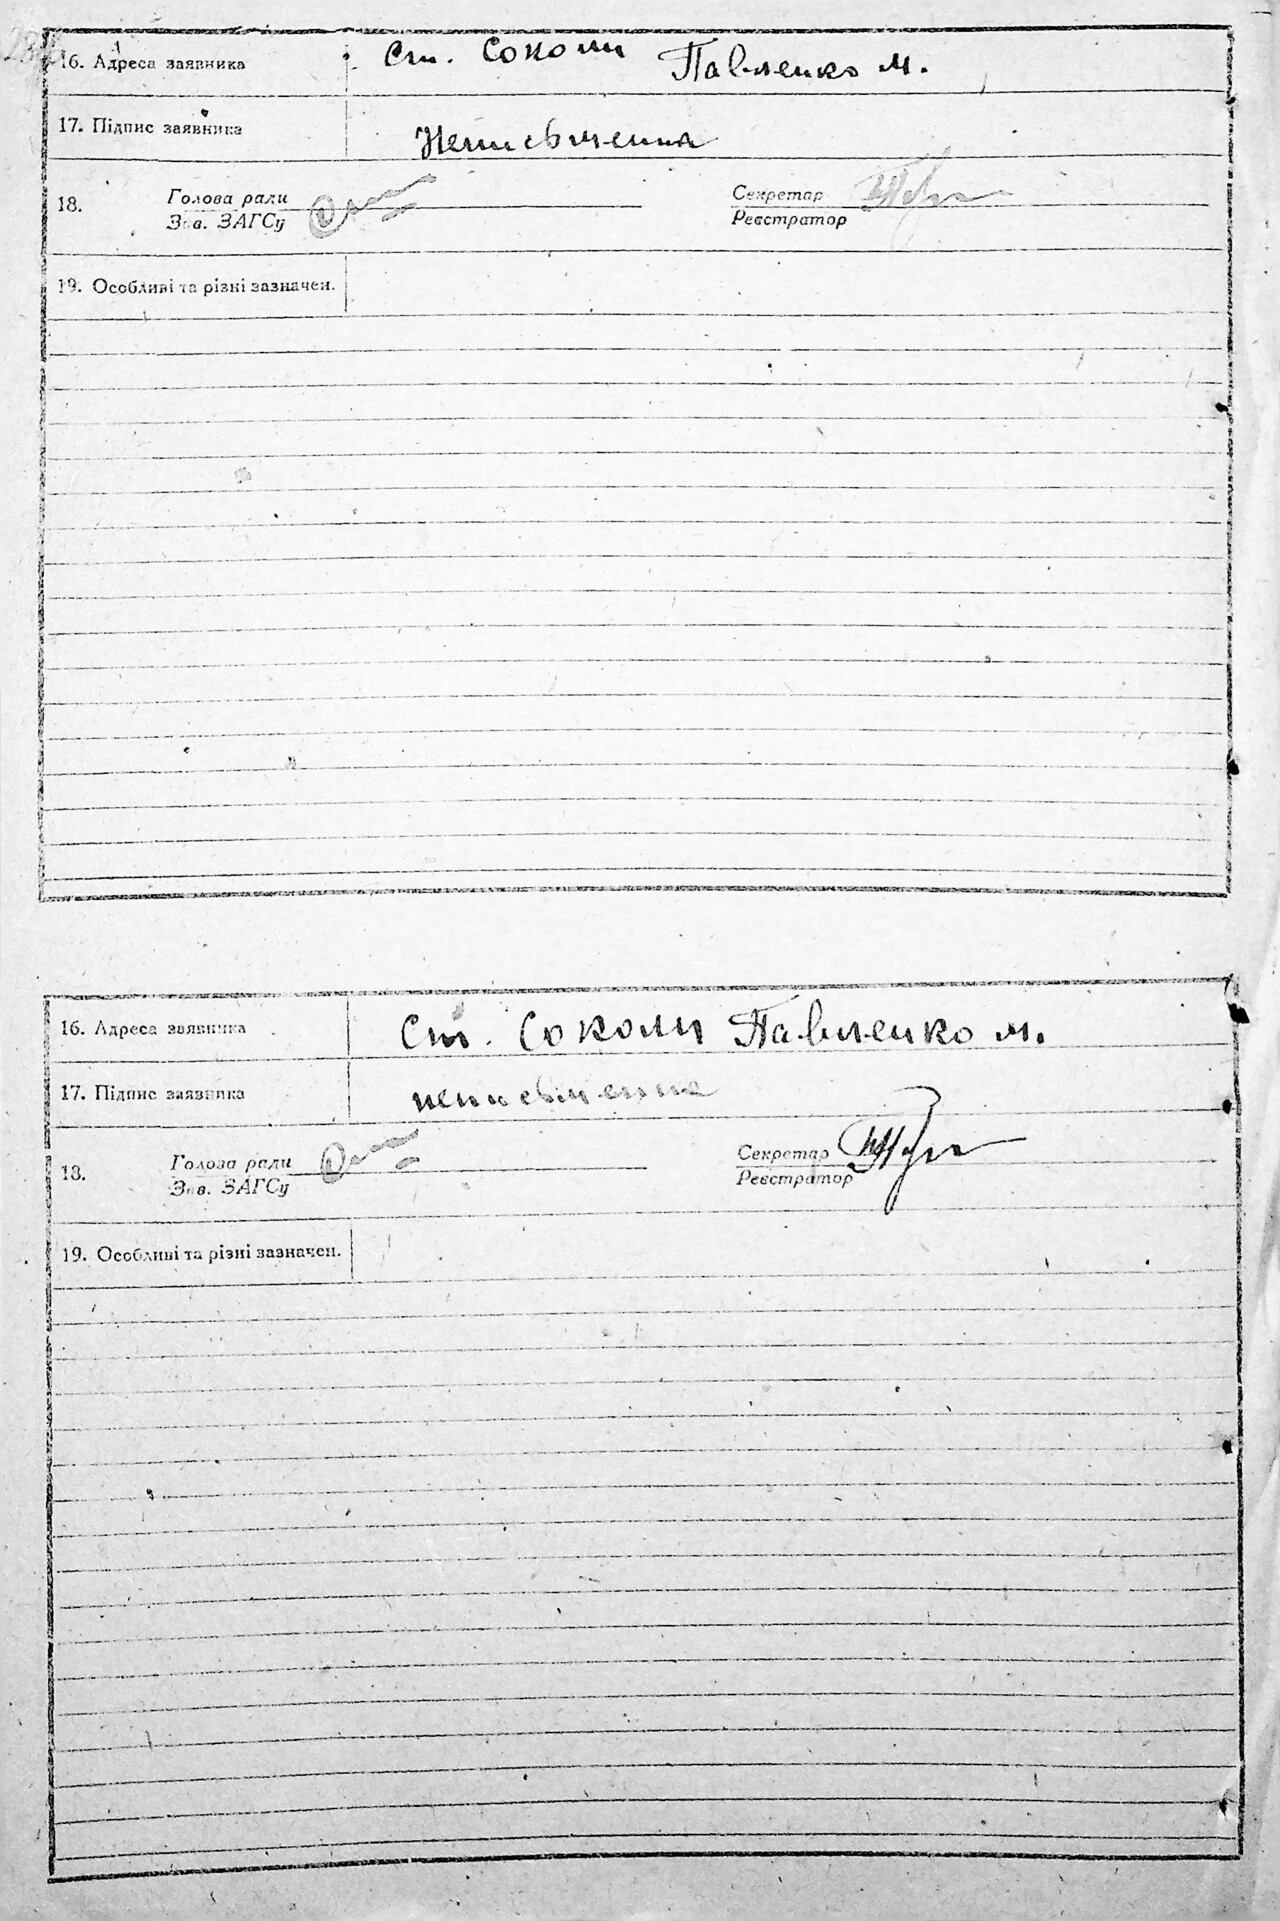 16. Адреса заявника Ст. Соколи Павленко М.
17. Підпис заявника Неписьменна
18. Голова ради Секретар
Зав. ЗАГСу Реєстратор
19. Особливі та різні зазначен.
16. Адреса заявника Ст. Соколи Павленко М.
17. Підпис заявника неписьменна
18. Голова ради Секретар
Зав. ЗАГСу Реєстратор
19. Особливі та різні зазначен.